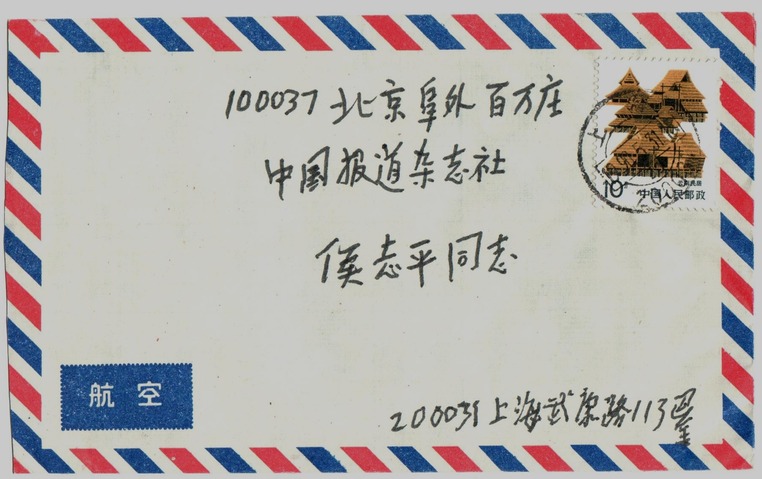 100037 北京阜外百万庄
中国报道杂志社
侯志平同志
10分
云南民居
中国人民邮政
上
航空
200031 上海武康路113 巴金